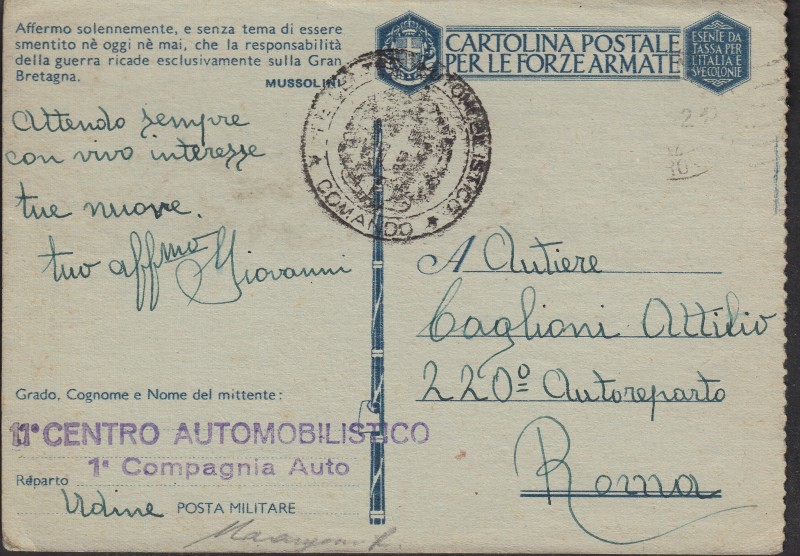 Affermo solennemente, e senza tema di essere
smentito nè oggi nè mai, che la responsabilità
della guerra ricade esclusivamente sulla Gran
Bretagna.
MUSSOLINI
CARTOLINA POSTALE
PER LE FORZE ARMATE
ESENTE DA
TASSA PER
L'ITALIA E
SVE COLONIE
AUTOMOBILISTICO
COMANDO
Attendo sempre
con vivo interesse
tue nuove.
tuo affmo Giovanni
A Autiere
Caglioni Attilio
220º Autoreparto
Roma
Grado, Cognome e Nome del mittente:
11° CENTRO AUTOMOBILISTICO
1ª Compagnia Auto
Reparto
Udine POSTA MILITARE